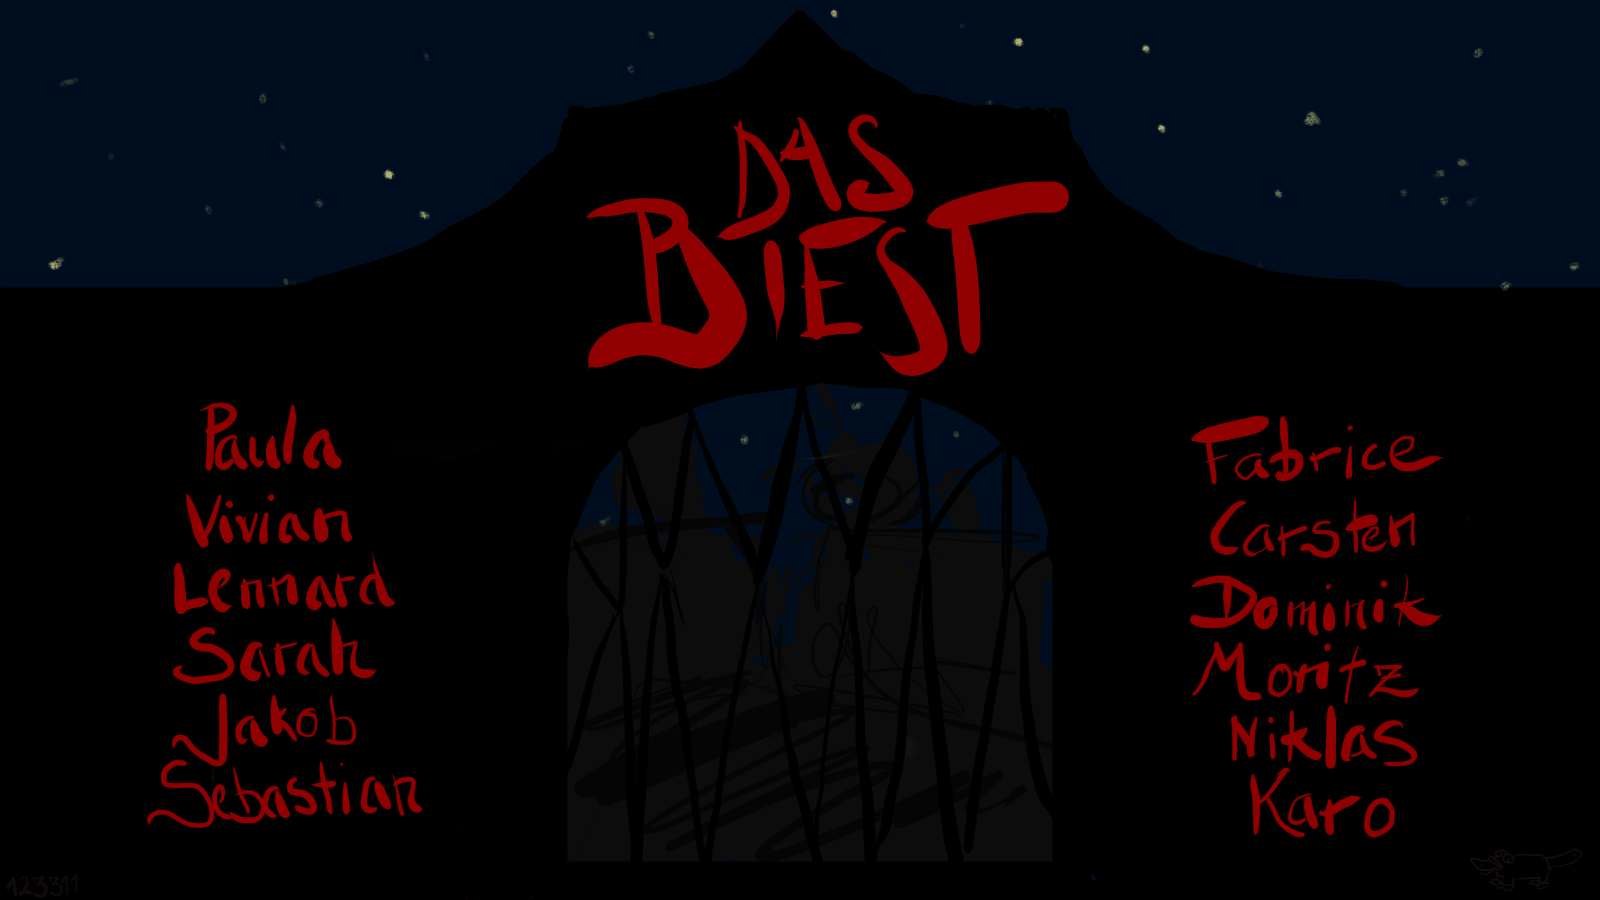 DAS
BIEST
Paula
Vivian
Lennard
Sarah
Jakob
Sebastian
Fabrice
Carsten
Dominik
Moritz
Niklas
Karo
123311